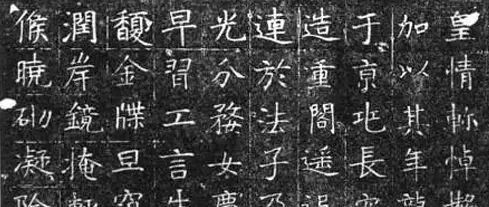 皇情軫悼
加以其年龍
于京兆長
造重閣遥追
連於法子乃
光分婺女慶
早習工言生
馥金牒旦
潤岸鏡掩
候曉砌凝陰